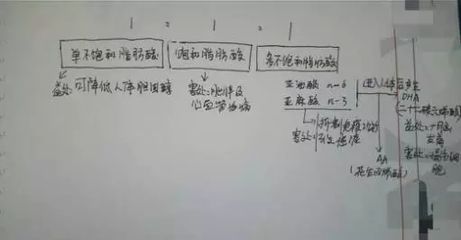 1 : 1 : 1
单不饱和脂肪酸
饱和脂肪酸
多不饱和脂肪酸
益处:可降低人体胆固醇
害处:肥胖及
心血管疾病
亚油酸 n-6
亚麻酸 n-3
进入人体后产生
DHA
抑制免疫功能
害处:
AA
(花生四烯酸)
益处:
害处:
胞